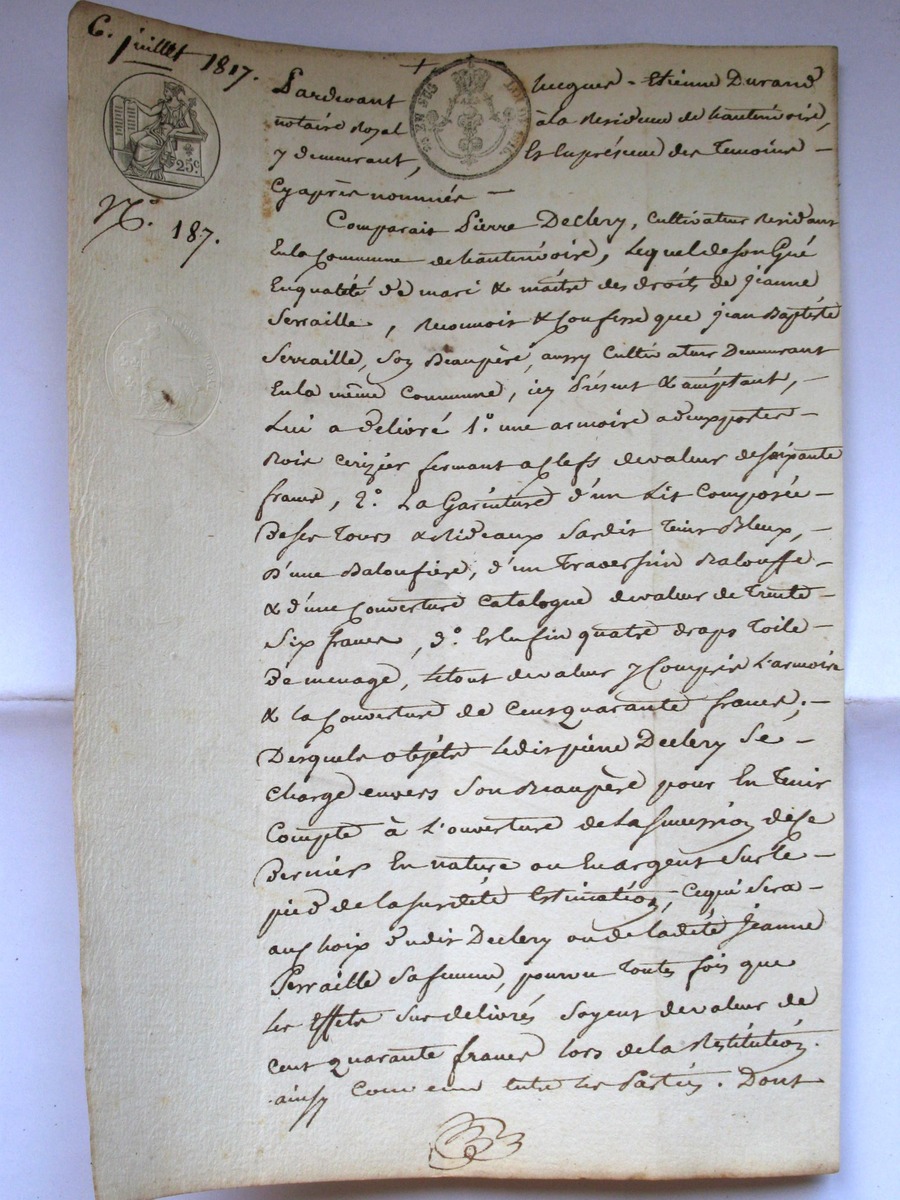 6. juillet 1817.
25c.
N.º 187.
Pardevant hugues-Etienne Durand
notaire Royal à la Residence de hauterivoire,
y demeurant, Et En présence des Temoins
Cy après nommés
Comparait Pierre Declery, Cultivateur Residant
En la Commune de hauterivoire, Lequel de son Gré
En qualité de mari & maitre des droits de Jeanne
Serraille, reconnoit & Confesse que jean Baptiste
Serraille, son Beaupère, aussy Cultivateur Demeurant
En la même Commune, icy Présent & acceptant,
Lui a délivré 1.º une armoire a deux portes
Bois cerizier fermant a Clefs de valeur de soixante
francs, 2.º La Garniture d'un Lit Composée
De ses Tours & Rideaux Sardis Teint Bleux,
D'une Baloufière, d'un Traversin Balouffe
& d'une Couverture Catalogne de valeur de Trente
Six francs, 3.º Et Enfin quatre draps Toile
De menage, Le tout de valeur y Compris L'armoire
& la Couverture de Cent quarante francs;
Desquels objéts Ledit pierre Declery Se
Charge envers Son Beaupère pour En Tenir
Compte à L'ouverture de La Succession de Ce
Dernier En nature ou En argent Sur le
pied de la Surdité Estimation, Ce qui Sera
au Choix dudit Declery ou de ladité Jeanne
Serraille Sa femme, pourvu Toutes fois que
Les Effets Sus délivrés Soyent de valeur de
Cent quarante francs lors de la Restitution.
ainsy Convenu entre les Parties. Dont